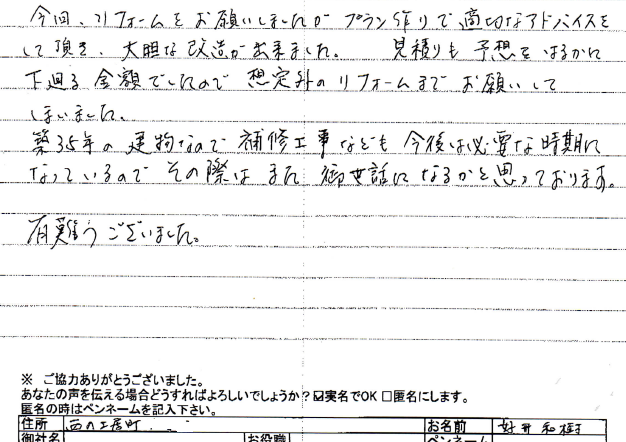 今回、リフォームをお願いしましたがプラン作りで適切なアドバイスを
して頂き、大胆な改造が出来ました。 見積りも予想をはるかに
下廻る金額でしたので想定外のリフォームまでお願いして
しまいました。
築35年の建物なので補修工事なども今後は必要な時期に
なっているのでその際はまた御世話になるかと思っております。
有難うございました。
※ ご協力ありがとうございました。
あなたの声を伝える場合どうすればよろしいでしょうか？☑実名でOK □匿名にします。
匿名の時はペンネームを記入下さい。
住所 西の工居町 お名前 和樹
御社名 お役職 ペンネーム